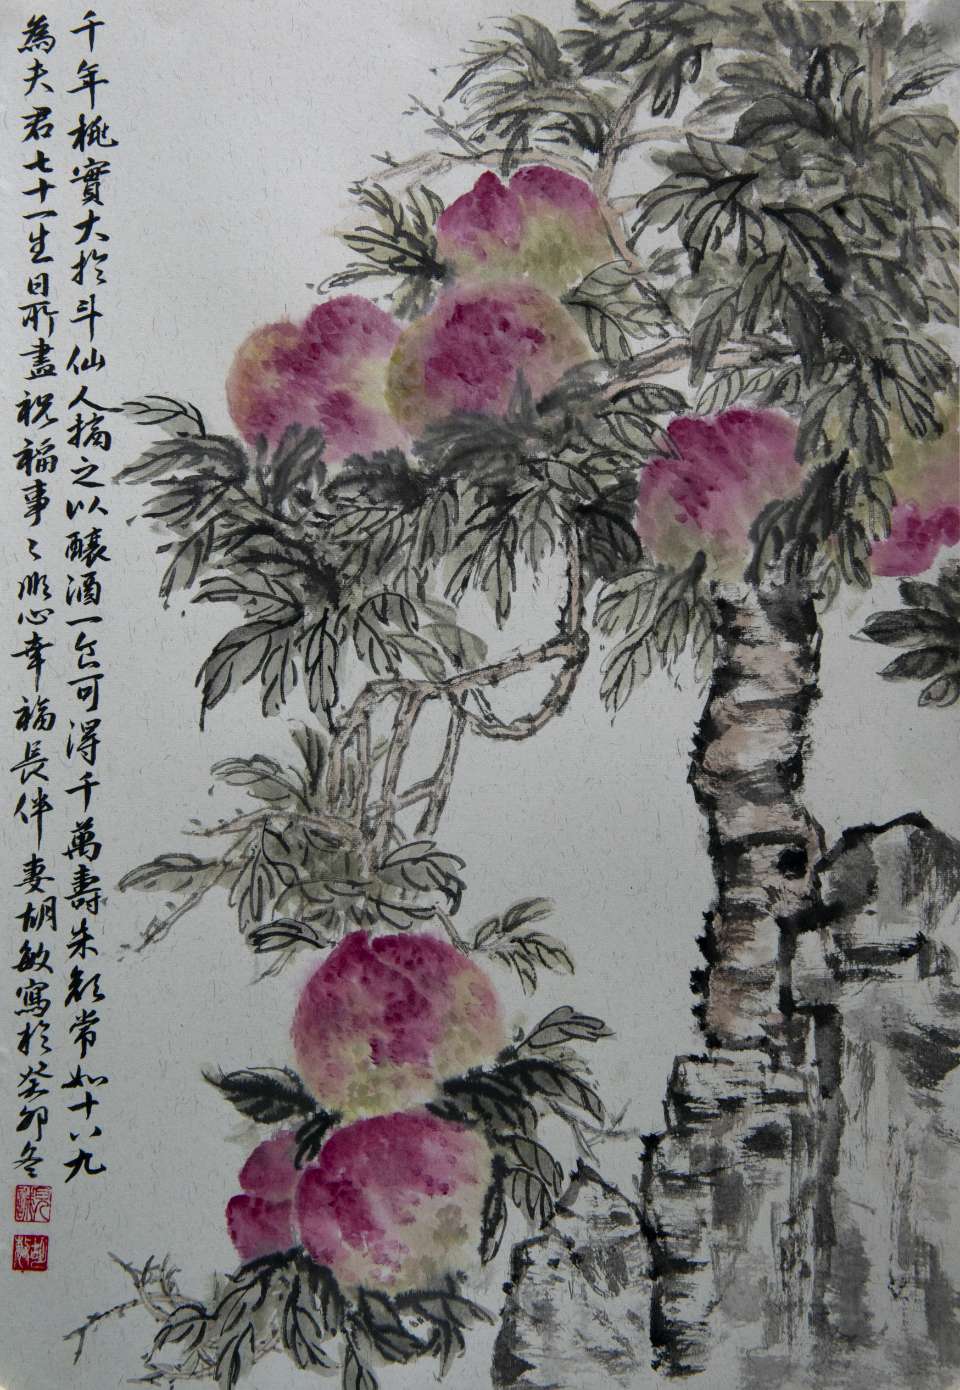 千年桃實大於斗仙人摘之以釀酒一食可得千萬壽朱顏常如十八九
為夫君七十一生日所畫祝福事〻順心幸福長伴妻胡敏寫於癸卯冬
胡敏